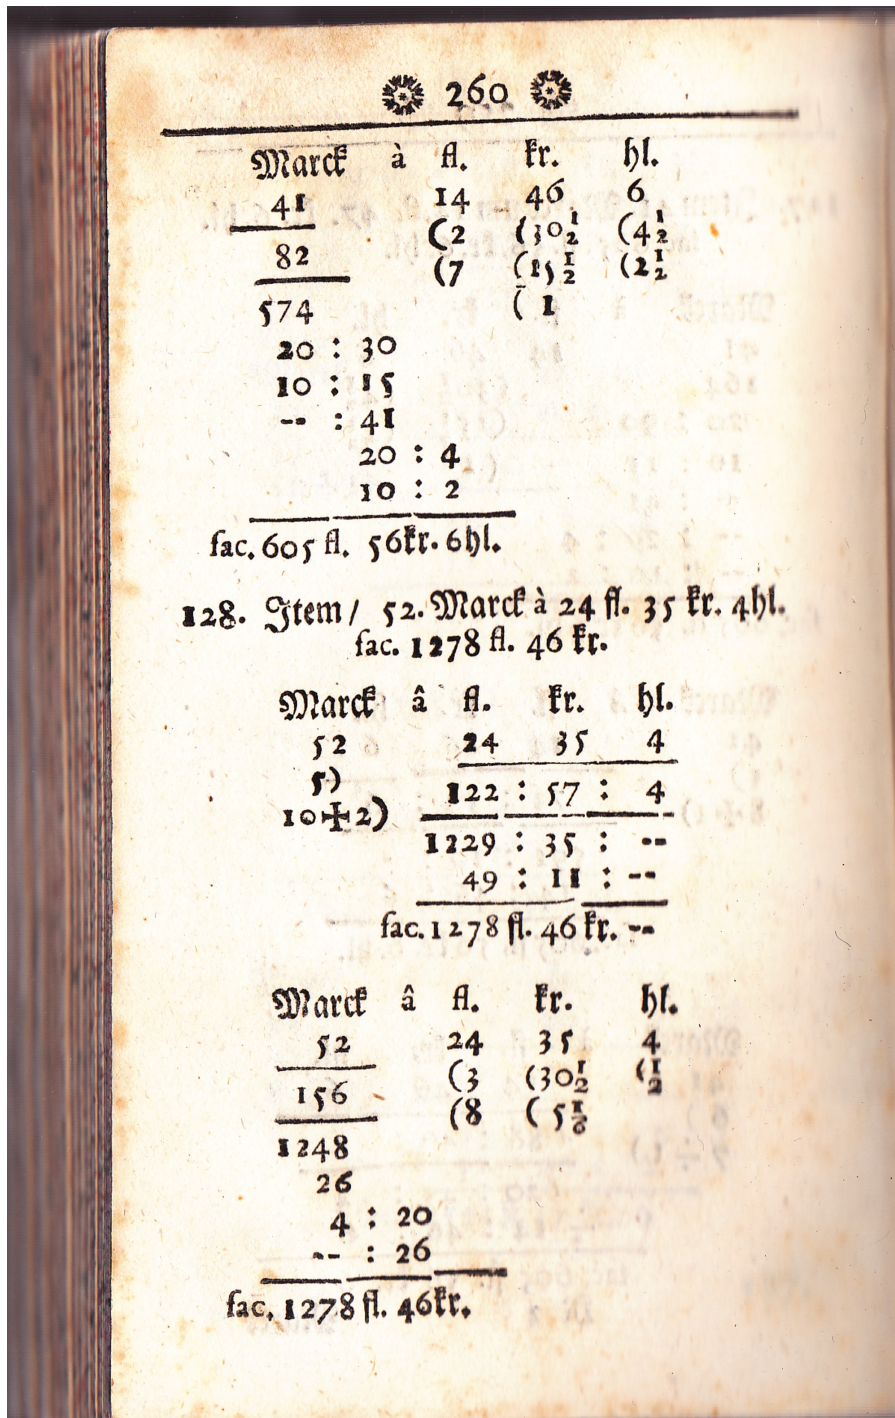 260
Marck à fl. kr. hl.
41 14 46 6
(2 (30 1/2 (4 1/2
82 (7 (15 1/2 (2 1/2
574 ( 1
20 : 30
10 : 15
-- : 41
20 : 4
10 : 2
fac. 605 fl. 56kr. 6hl.
128. Item / 52. Marck à 24 fl. 35 kr. 4hl.
fac. 1278 fl. 46 kr.
Marck â fl. kr. hl.
52 24 35 4
5)
122 : 57 : 4
10✠2)
1229 : 35 : --
49 : 11 : --
fac. 1278 fl. 46 kr. --
Marck â fl. kr. hl.
52 24 35 4
(3 (30 1/2 (1/2
156 (8 ( 5 1/6
1248
26
4 : 20
-- : 26
fac. 1278 fl. 46kr.